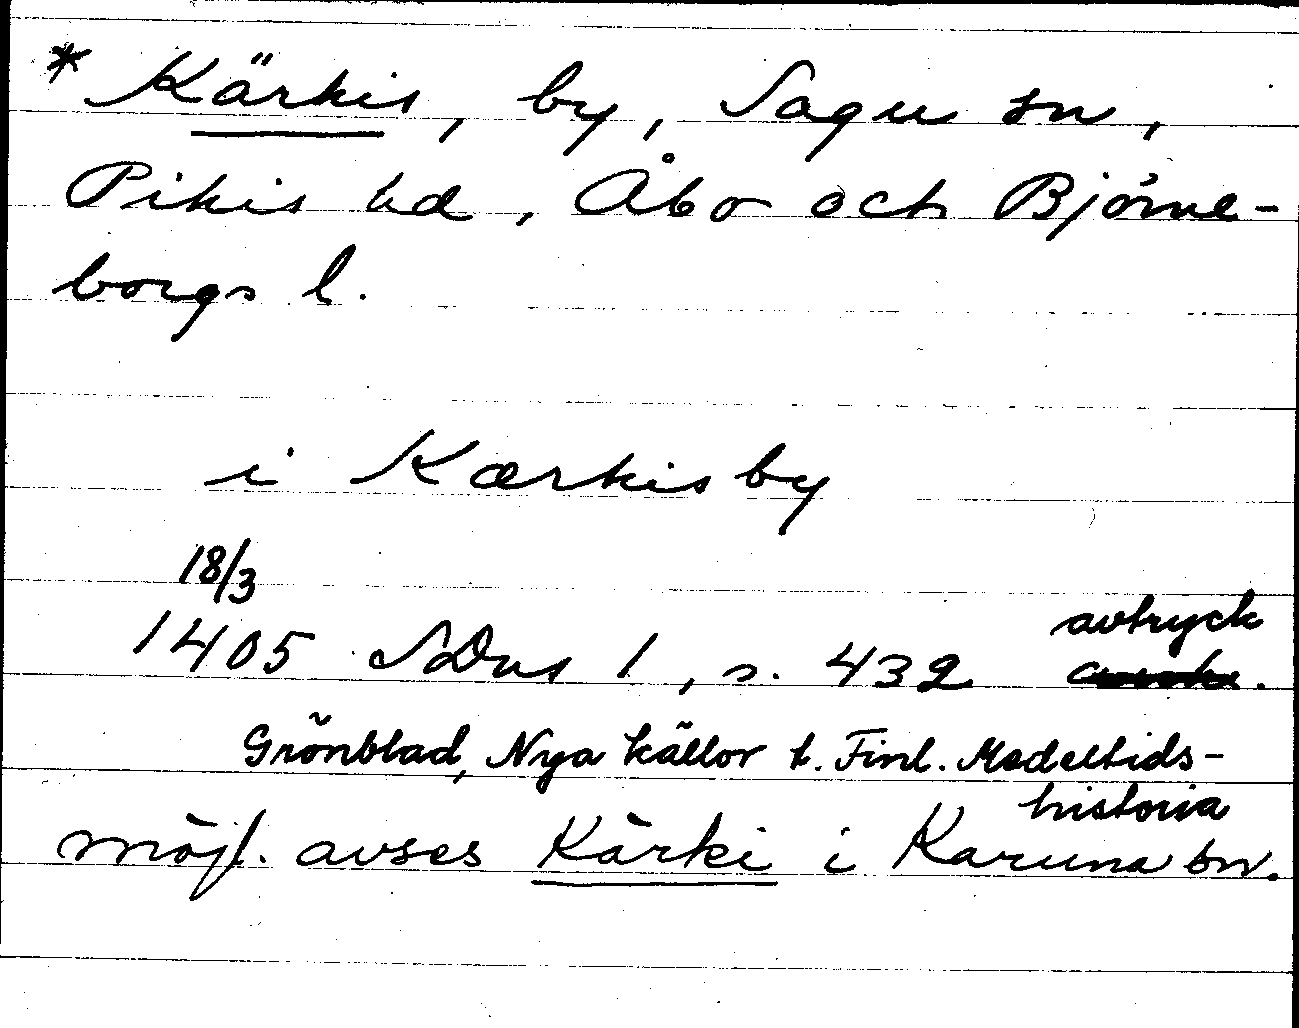 * Kärkis, by, Sagu sn,
Pikis hd, Åbo och Björne-
borgs l.
i Kærkisby
18/3
1405 SDns 1, s. 432 avtryck
Grönblad, Nya källor t. Finl. Medeltids-
historia
möjl. avses Kärki i Karuna sn.